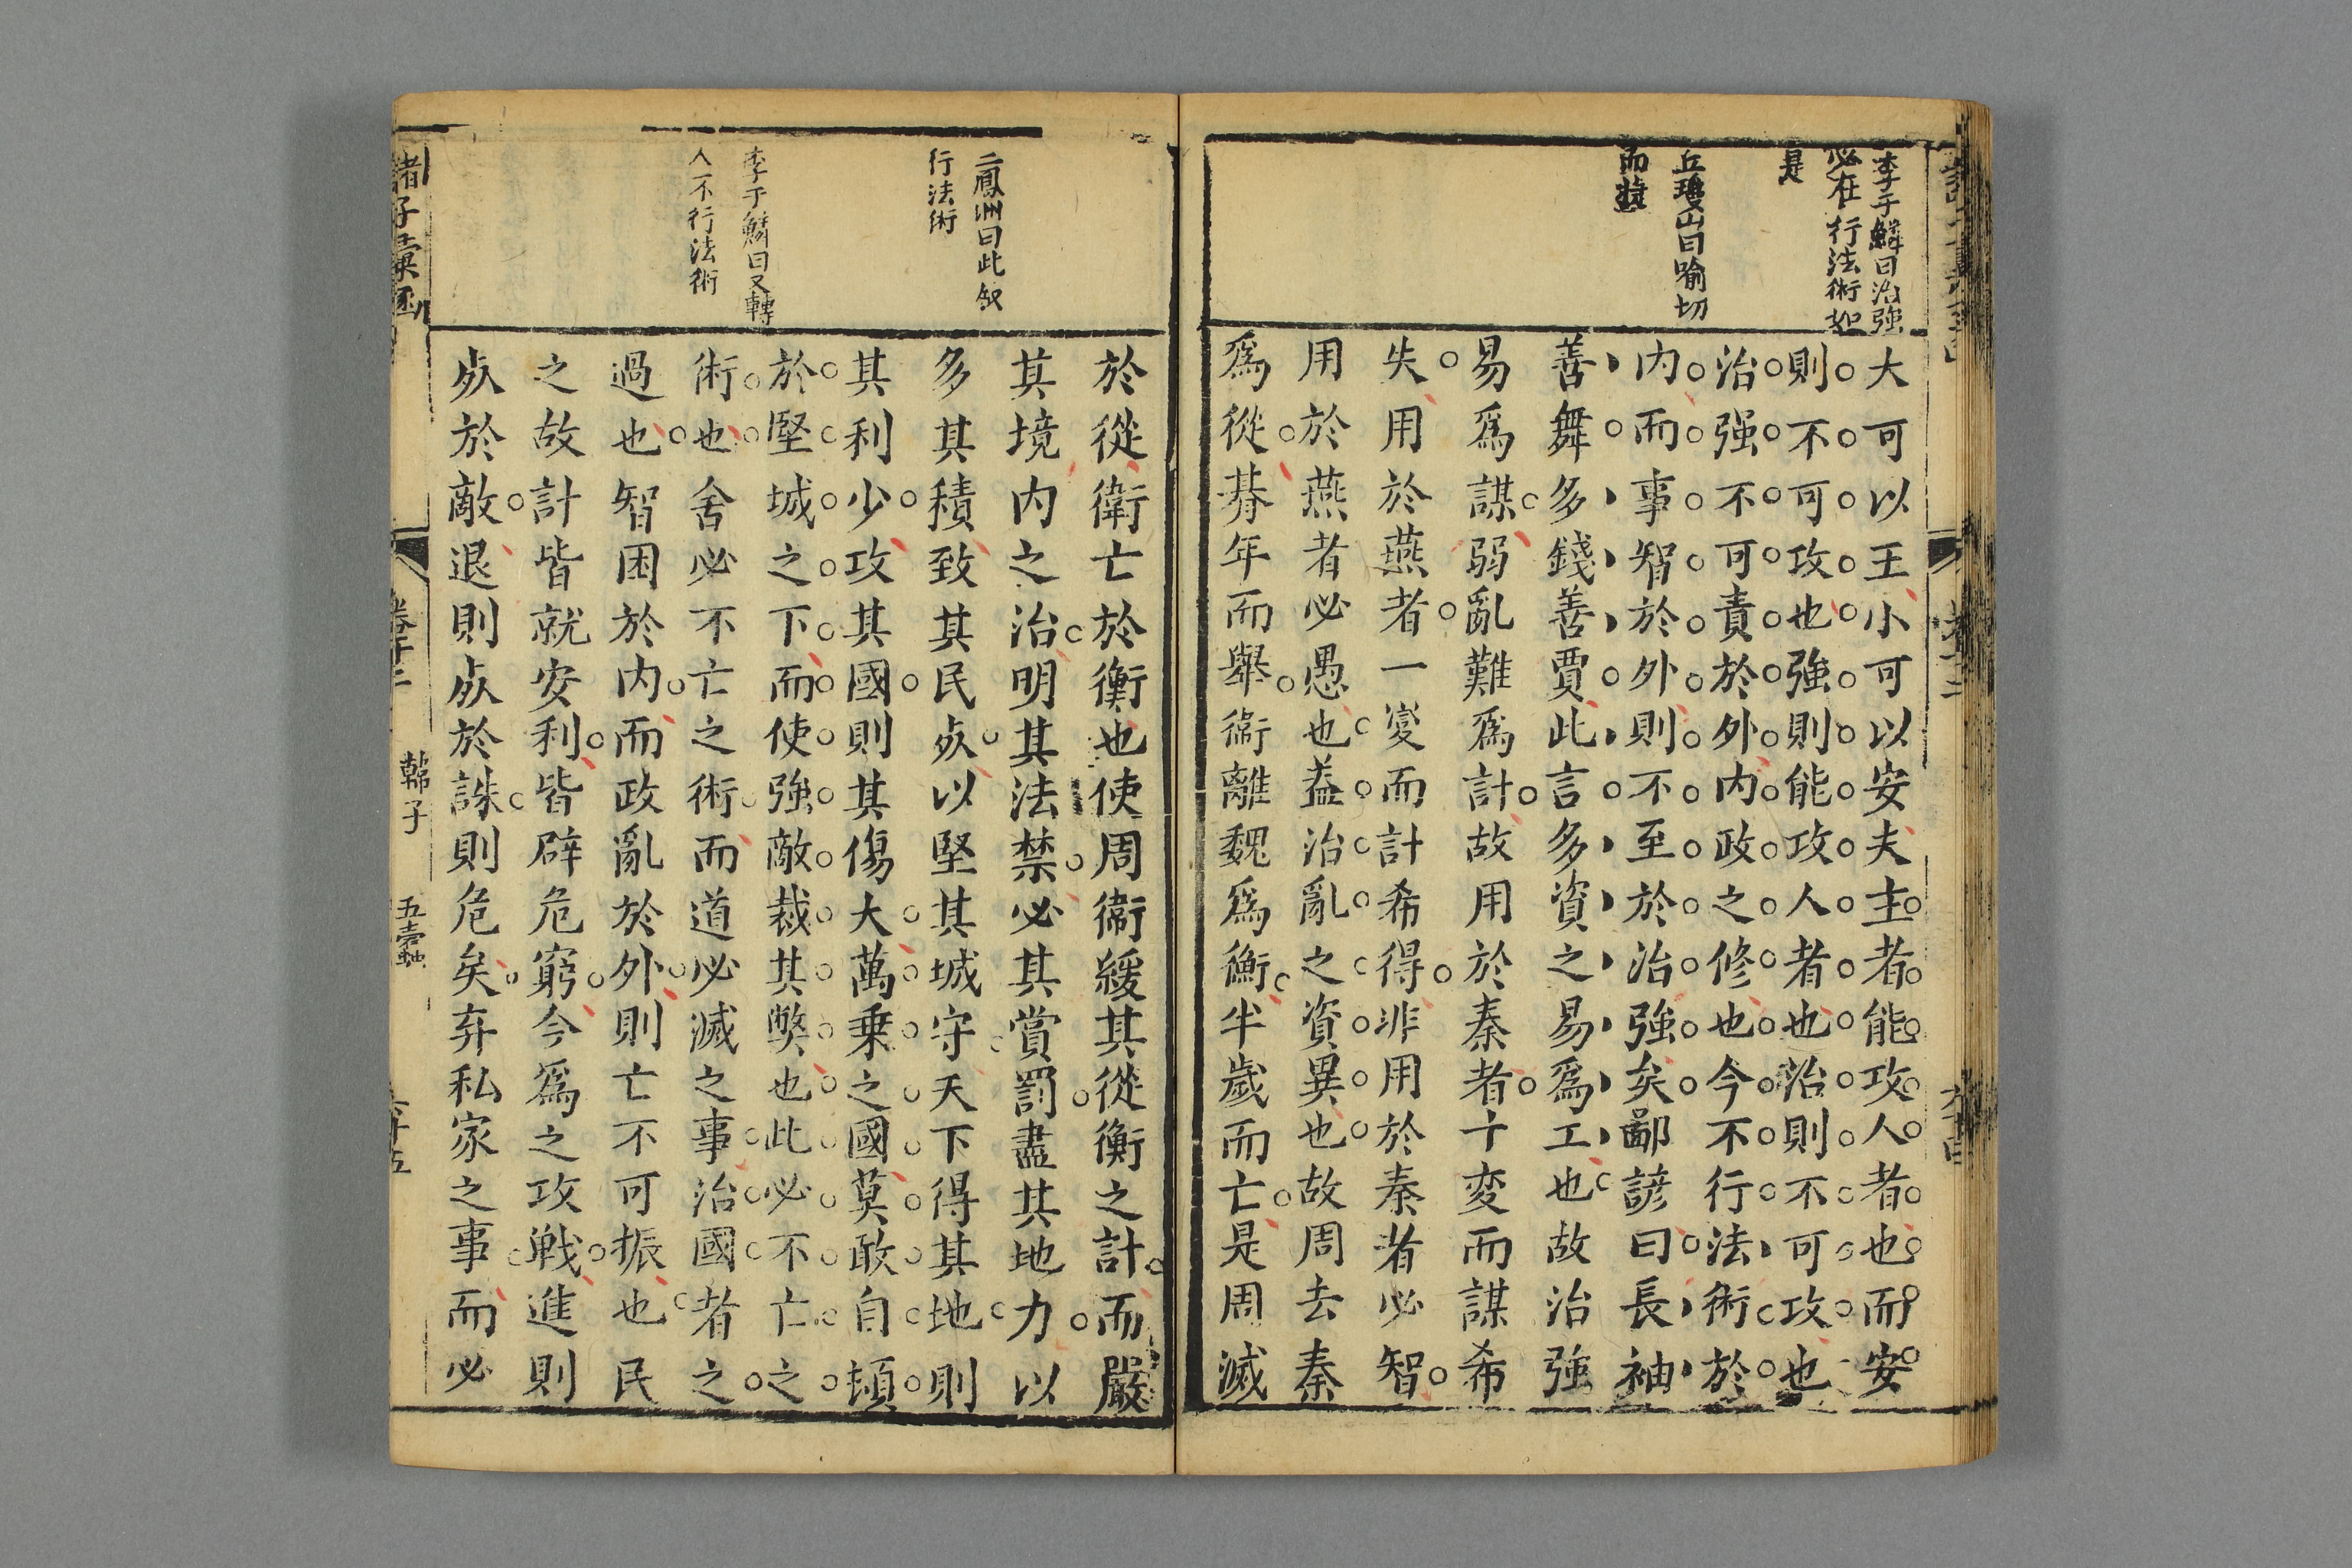 李于鱗曰治強
必在行法術如
是
丘瓊山曰喻切
而
大可以王小可以安夫主者能攻人者也而安
則不可攻也強則能攻人者也治則不可攻也
治强不可責於外內政之修也今不行法術於
内而事智於外則不至於治強矣鄙諺曰長袖
善舞多錢善賈此言多資之易爲工也故治強
易爲謀弱亂難爲計故用於秦者十变而謀希
失用於燕者一変而計希得非用於秦者必智
用於燕者必愚也葢治亂之資異也故周去秦
爲從朞年而舉衞離魏爲衡半歲而亡是周滅
二鳳洲曰此叙
行法術
李于鱗曰又轉
人不行法術
於從衛亡於衡也使周衞緩其從衡之計而嚴
其境内之治明其法禁必其賞罰盡其地力以
多其積致其民死以堅其城守天下得其地則
其利少攻其國則其傷大萬乗之國莫敢自頓
於堅城之下而使強敵裁其獘也此必不亡之
術也舍必不亡之術而道必滅之事治國者之
過也智困於内而政亂於外則亡不可振也民
之故計皆就安利皆辟危窮今爲之攻戰進則
死於敵退則死於誅則危矣弃私家之事而必
諸子彚函
卷十二
韓子
五蠹
六十五